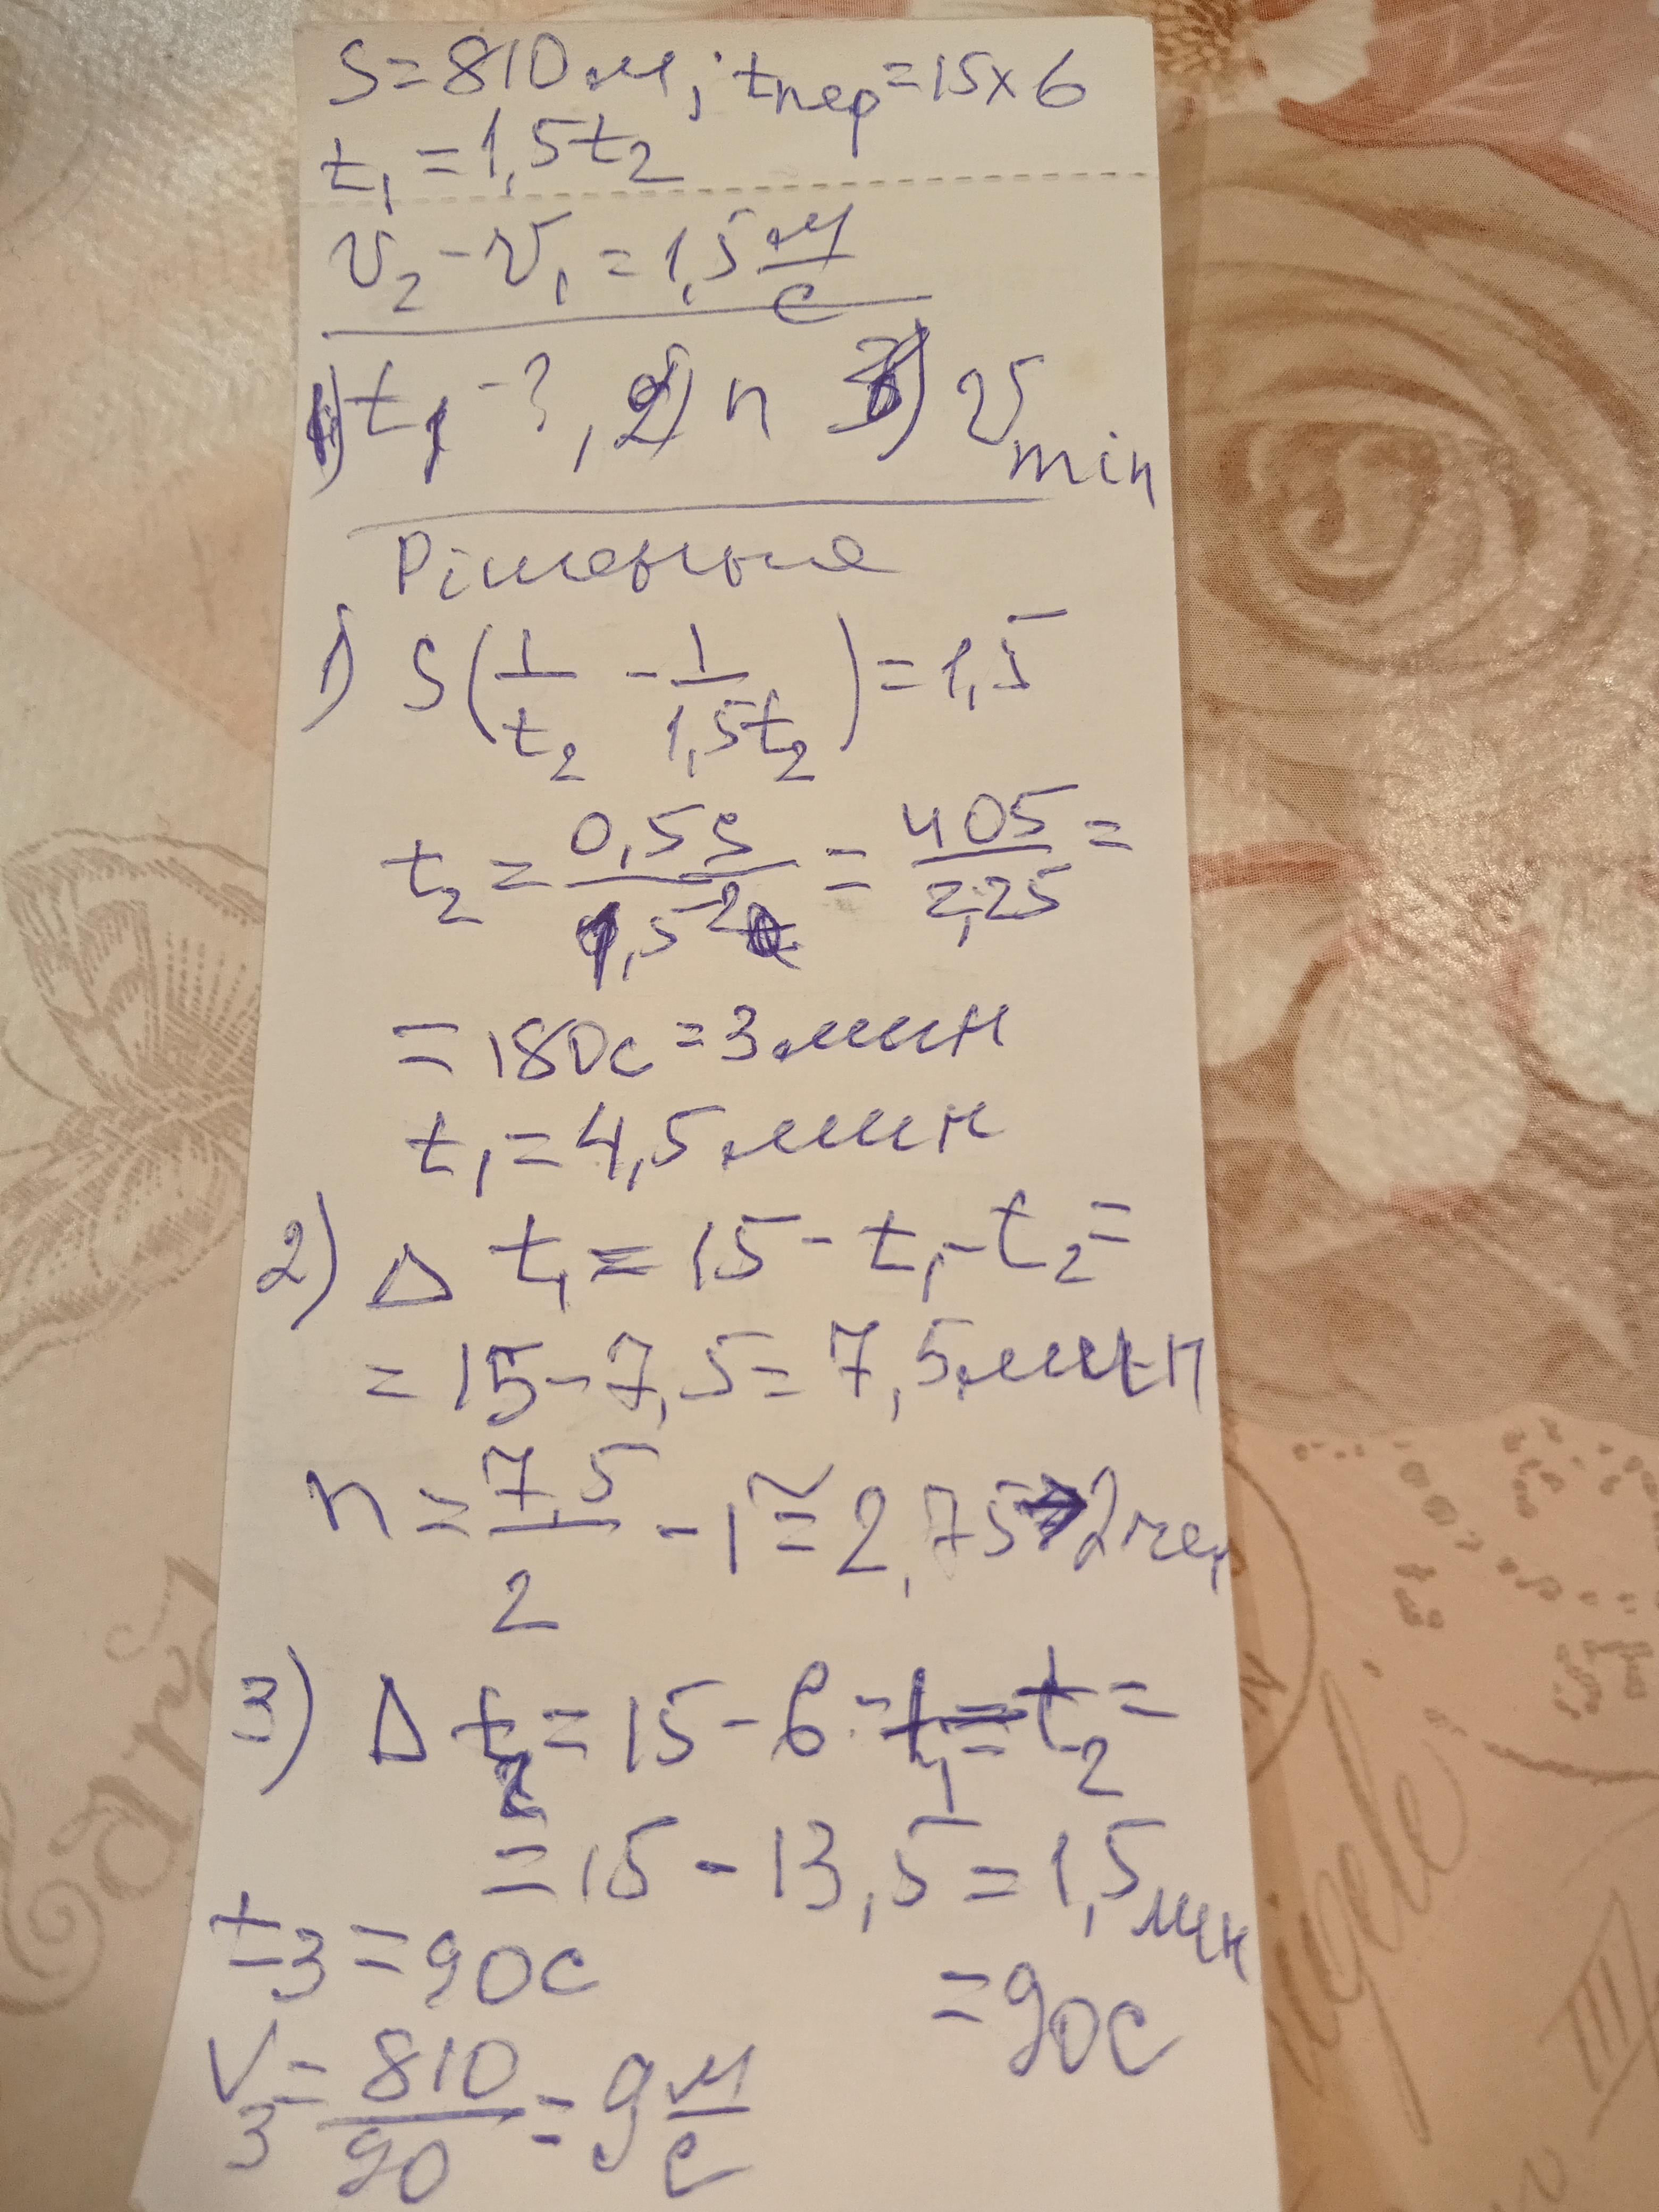 S=810м; tпер=15хв
t₁=1,5t₂
v₂-v₁=1,5 м/с
1) t₁-?, 2) n 3) v min
Рішенные
1) S(1/t₂ - 1/1,5t₂)=1,5
t₂ = 0,5S/1,5² = 405/2,25 =
= 180с = 3мин
t₁ = 4,5мин
2) Δt₁ = 15-t₁-t₂=
= 15-7,5=7,5мин
n = 7,5/2 - 1 ≅ 2,75→2чел
3) Δt₂=15-6-t₁-t₂=
= 15-13,5=1,5мин
t₃ = 90с = 90с
V₃ = 810/90 = 9 м/с